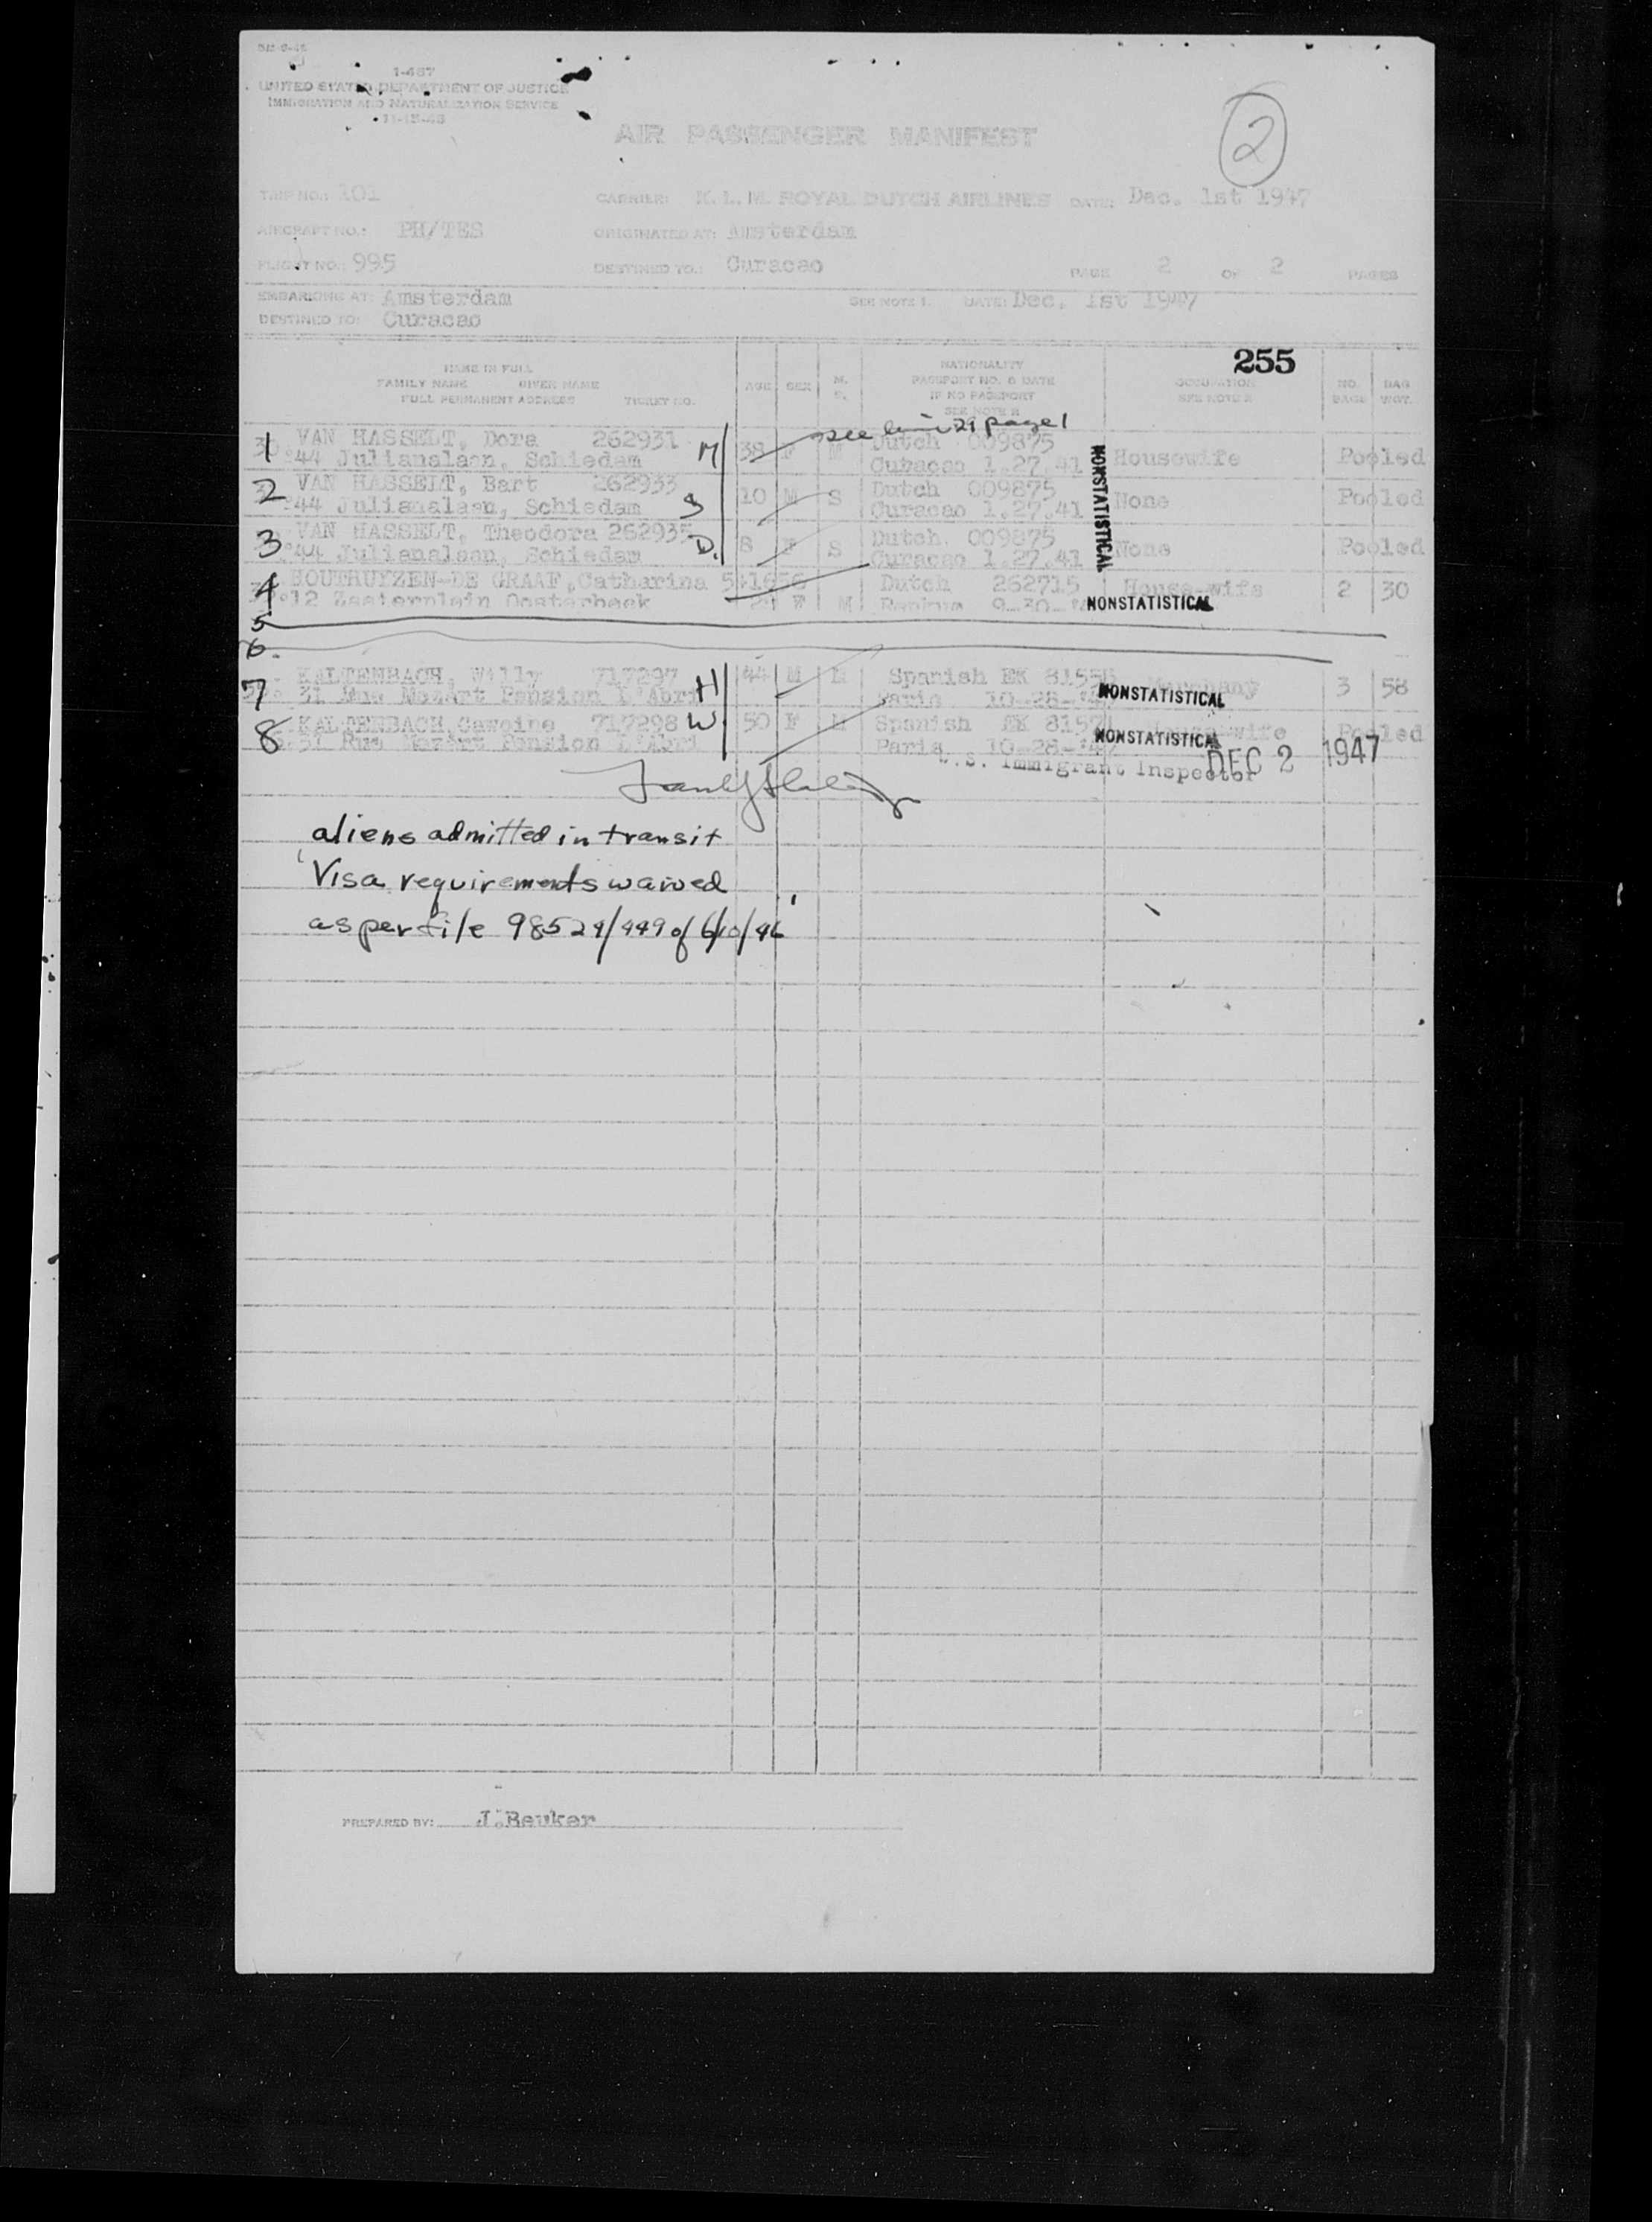 1-467
UNITED STATES DEPARTMENT OF JUSTICE
IMMIGRATION AND NATURALIZATION SERVICE
11-15-45
AIR PASSENGER MANIFEST
2
TRIP NO.: 101 CARRIER: K. L. M. ROYAL DUTCH AIRLINES DATE: Dec. 1st 1947
AIRCRAFT NO.: PH/TES ORIGINATED AT: Amsterdam
FLIGHT NO.: 995 DESTINED TO.: Curacao PAGE 2 OF 2 PAGES
EMBARKING AT: Amsterdam SEE NOTE 1. DATE: Dec. 1st 1947
DESTINED TO: Curacao
255
NAME IN FULL
FAMILY NAME GIVEN NAME
FULL PERMANENT ADDRESS TICKET NO.
AGE SEX M. S.
NATIONALITY
PASSPORT NO. & DATE
IF NO PASSPORT
SEE NOTE 2
OCCUPATION
SEE NOTE 2
NO. BAGG BAG WGT.
see line 29 page 1
1 VAN HASSELT, Dora 262931 M 38 F M Dutch 009875 Housewife Pooled
44 Julianalaan, Schiedam Curacao 1.27.41
2 VAN HASSELT, Bart 262933 S 10 M S Dutch 009875 None Pooled
44 Julianalaan, Schiedam Curacao 1.27.41
3 VAN HASSELT, Theodora 262935 D. 8 F S Dutch. 009875 None Pooled
44 Julianalaan, Schiedam Curacao 1.27.41
NONSTATISTICAL
4 BOUTHUYZEN-DE GRAAF, Catharina 541656 F M Dutch 262715 House-wife 2 30
12 Oosterbeek Renkum 9-30- NONSTATISTICAL
5
6.
7 KALTENBACH, Willy 717297 H 44 M M Spanish EK 8155 3 58
31 Rue Mozart Pension L'Abri Paris 10-28- NONSTATISTICAL
8 KALTENBACH, 717298 W. 50 F M Spanish EK 8157 Pooled
31 Rue Mozart Pension L'Abri Paris 10-28-47 NONSTATISTICAL
U.S. Immigrant Inspector DEC 2 1947
aliens admitted in transit
Visa requirements waived
as per file 98524/449 of 6/10/46
PREPARED BY: J. Beuker